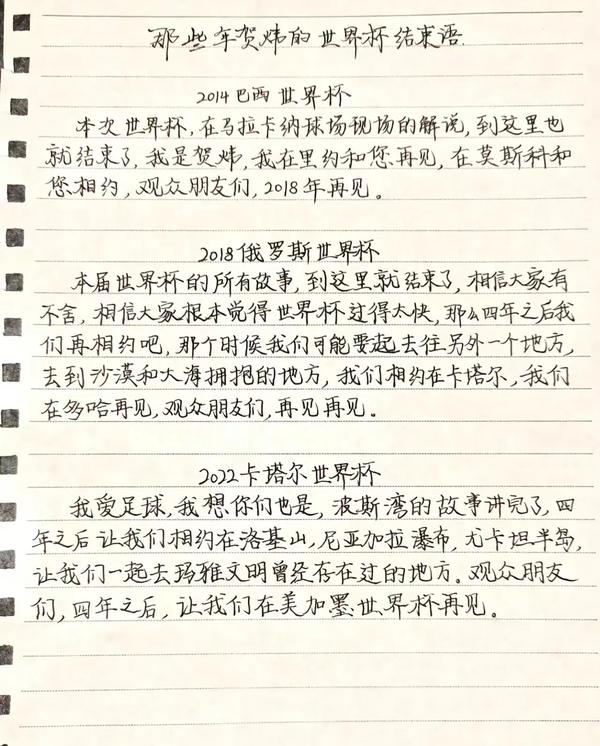 那些年贺炜的世界杯结束语.
2014巴西世界杯
本次世界杯,在马拉卡纳球场现场的解说,到这里也
就结束了,我是贺炜,我在里约和您再见,在莫斯科和
您相约,观众朋友们,2018年再见。
2018俄罗斯世界杯
本届世界杯的所有故事,到这里就结束了,相信大家有
不舍,相信大家根本觉得世界杯过得太快,那么四年之后我
们再相约吧,那个时候我们可能要起去往另外一个地方,
去到沙漠和大海拥抱的地方,我们相约在卡塔尔,我们
在多哈再见,观众朋友们,再见再见。
2022卡塔尔世界杯
我爱足球,我想你们也是,波斯湾的故事讲完了,四
年之后让我们相约在洛基山,尼亚加拉瀑布,尤卡坦半岛,
让我们一起去玛雅文明曾经存在过的地方。观众朋友
们,四年之后,让我们在美加墨世界杯再见。